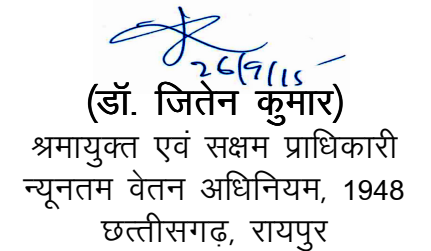 26/9/15
(डॉ. जितेन कुमार)
श्रमायुक्त एवं सक्षम प्राधिकारी
न्यूनतम वेतन अधिनियम, 1948
छत्तीसगढ़, रायपुर